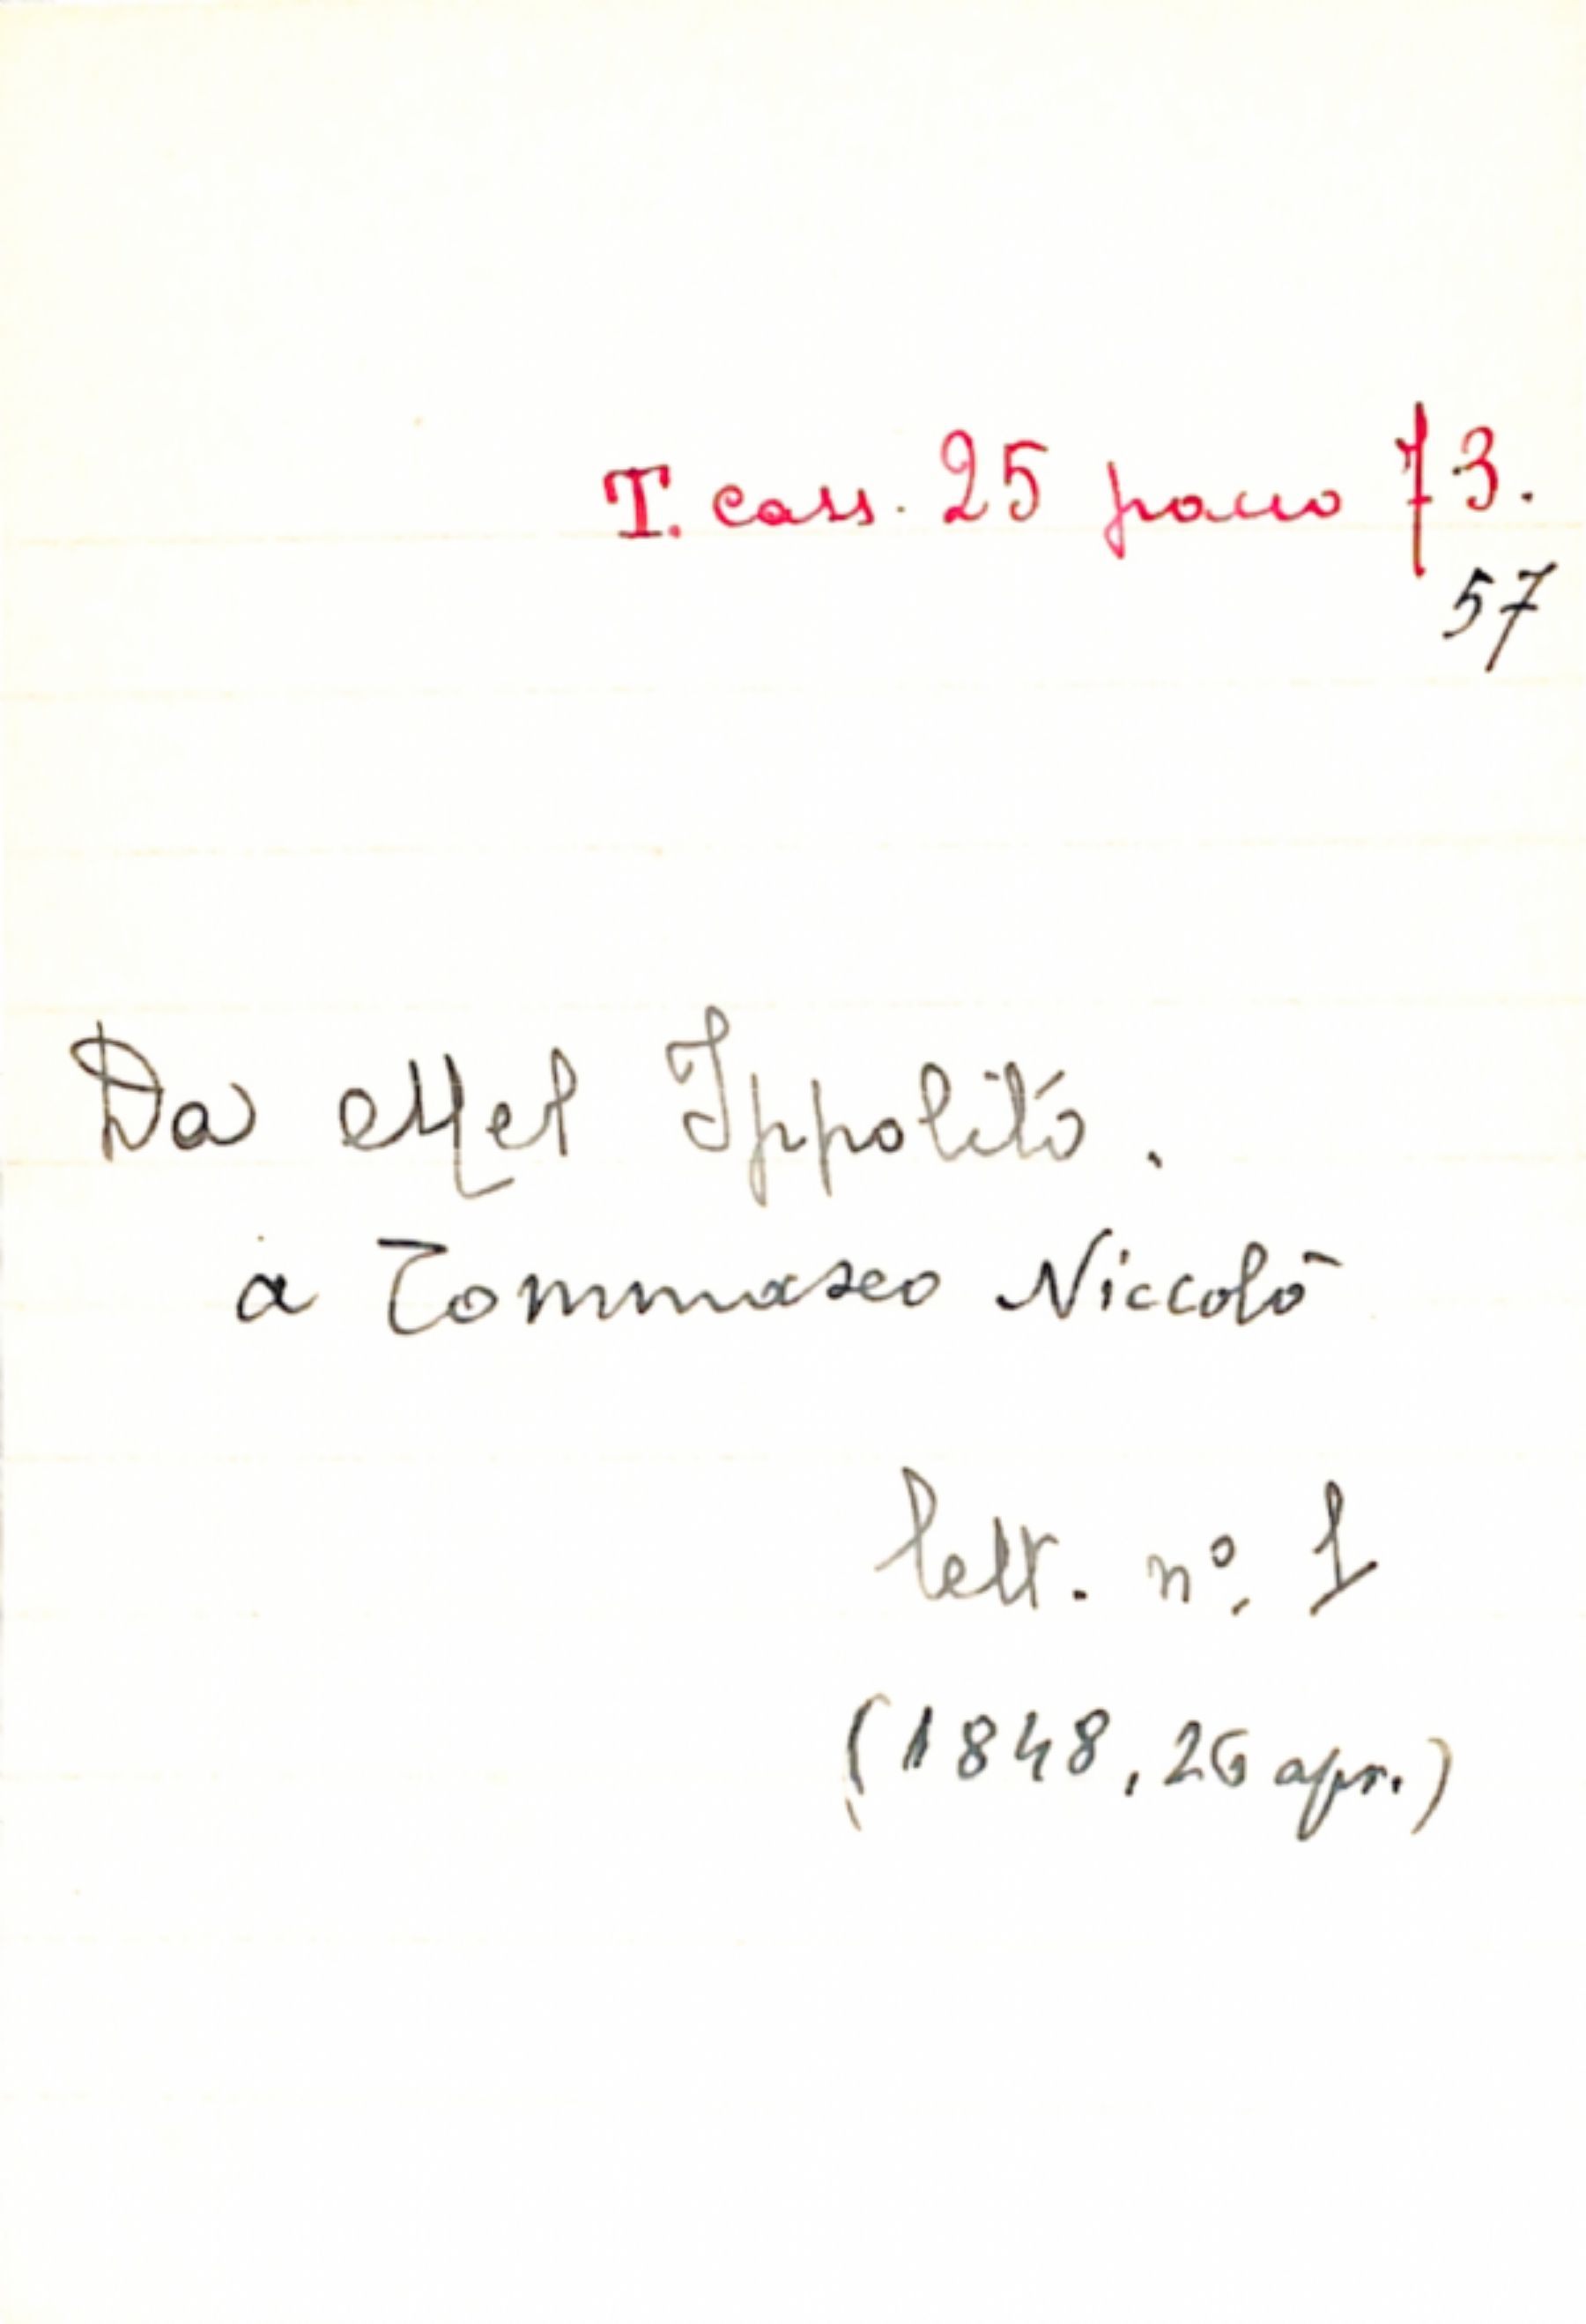 T. cass. 25 pacco 73.
57
Da Mel Ippolito.
a Tommaseo Niccolò
lett. nº. 1
(1848, 26 apr.)